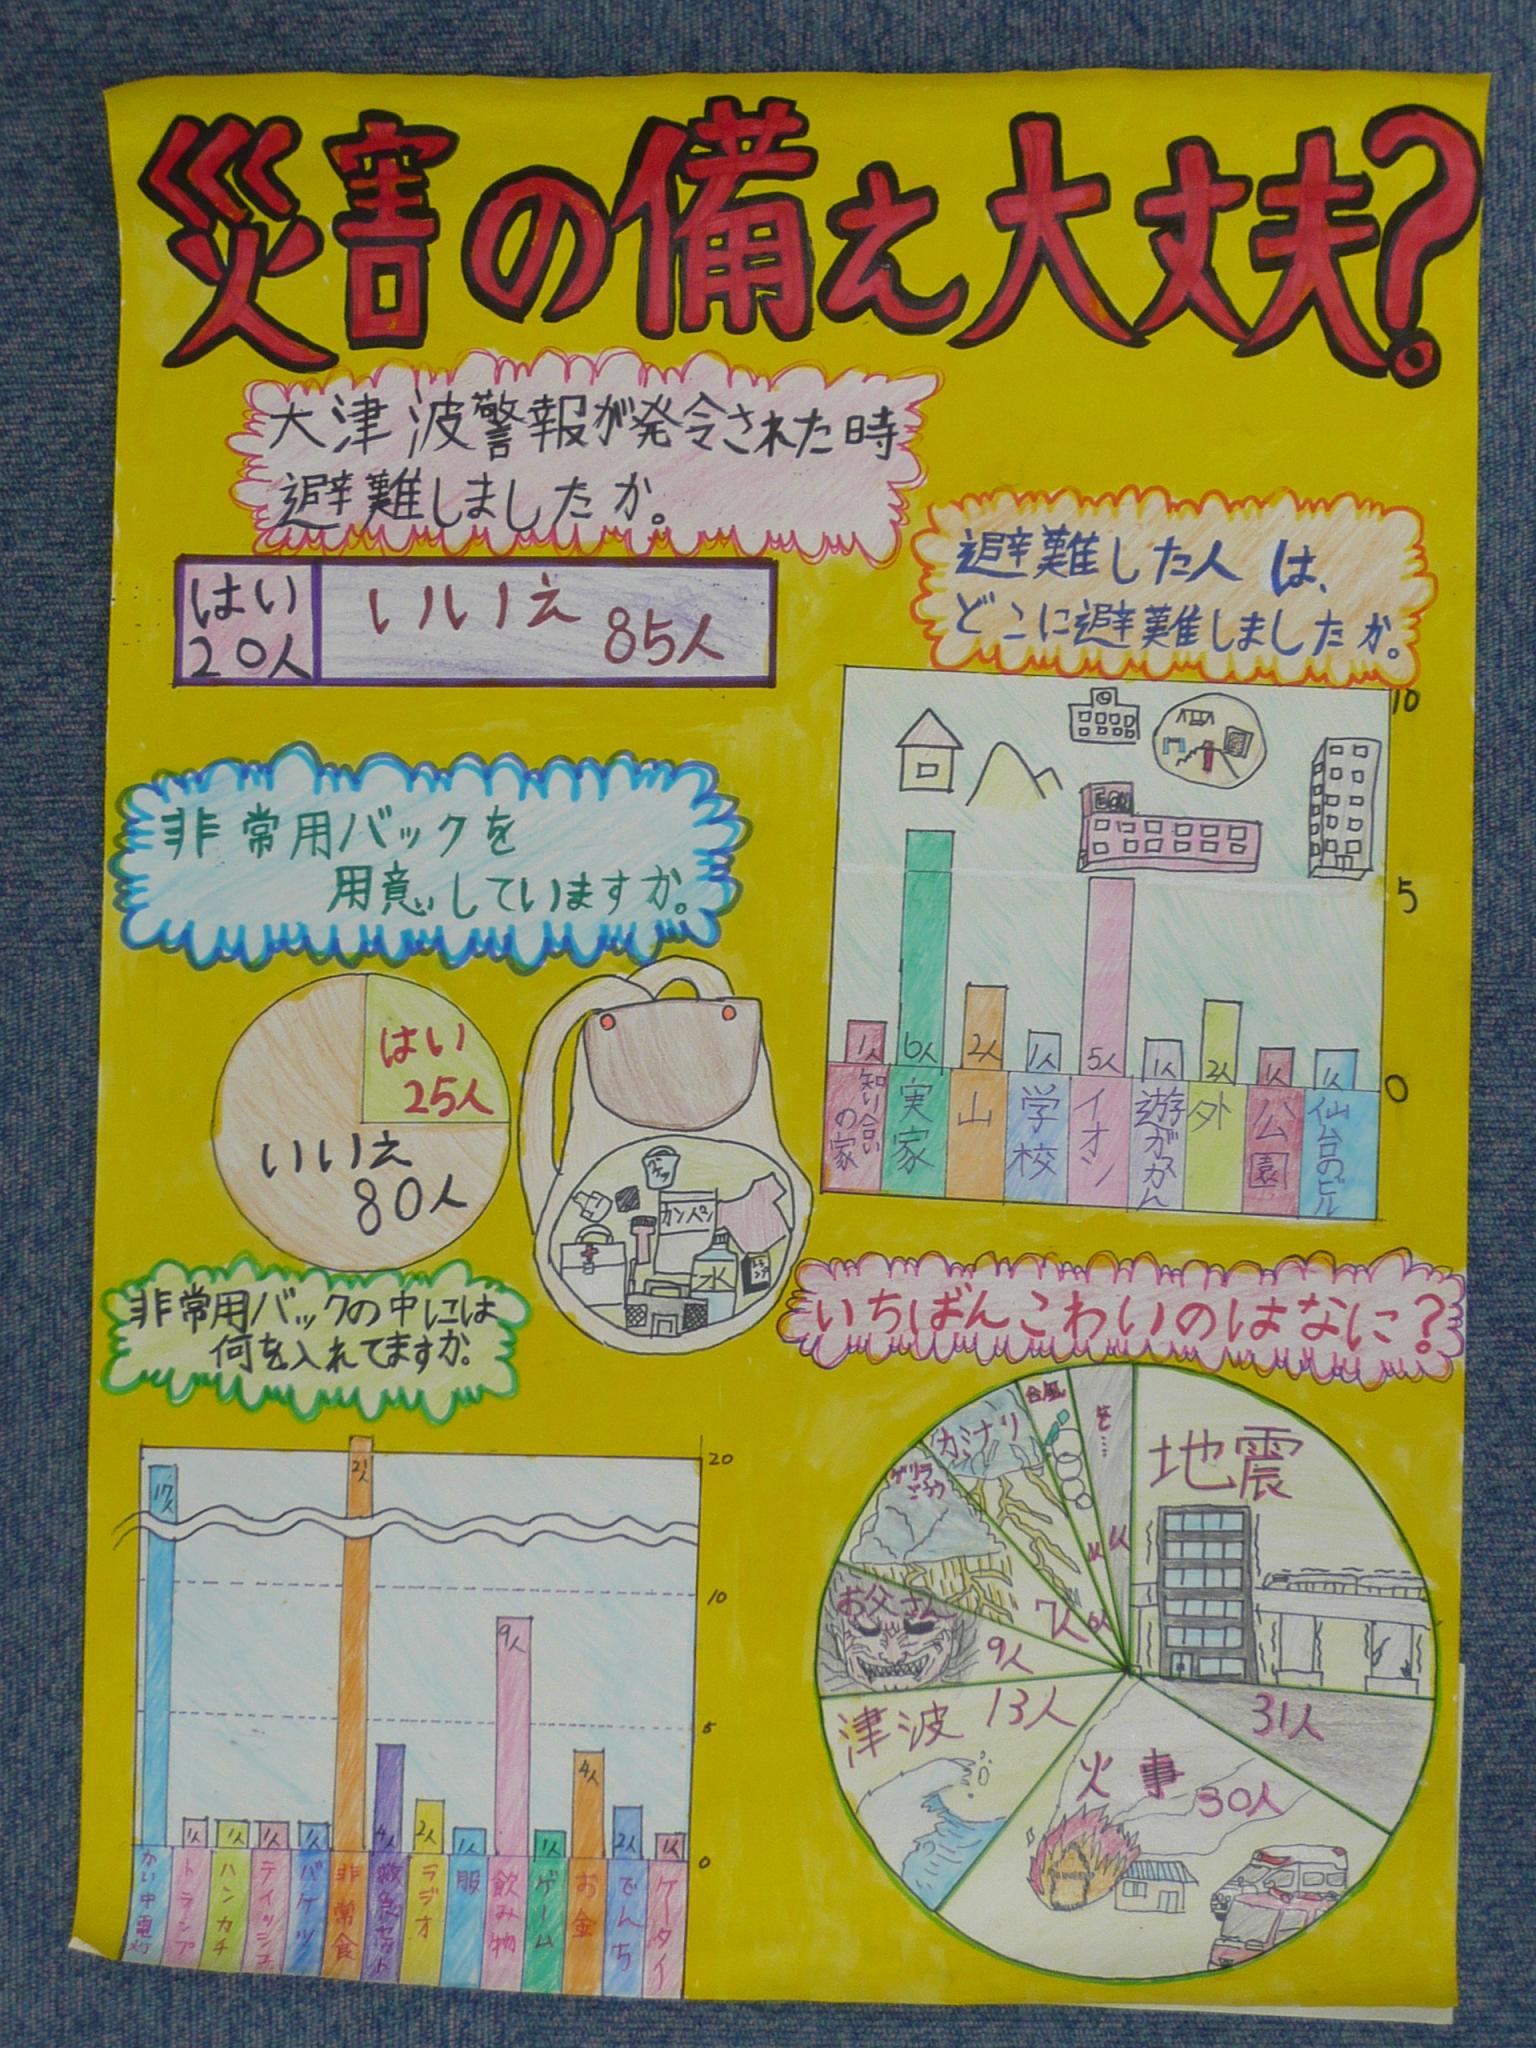 災害の備え大丈夫?
大津波警報が発令された時
避難しましたか。
はい
20人
いいえ
85人
避難した人は、
どこに避難しましたか。
10
5
0
1人
6人
2人
1人
5人
1人
2人
1人
1人
知り合いの家
実家
山
学校
イオン
遊がかん
外
公園
仙台のビル
非常用バックを
用意していますか。
はい
25人
いいえ
80人
バケツ
カンパン
水
非常用バックの中には
何を入れてますか。
20
10
5
0
17人
1人
1人
1人
1人
21人
4人
2人
1人
9人
1人
4人
2人
1人
かい中電灯
トランプ
ハンカチ
テイッシュ
バケツ
非常食
救急セット
ラジオ
服
飲み物
ゲーム
お金
でんち
ケータイ
いちばんこわいのはなに?
地震
31人
火事
30人
津波 13人
お父さん
9人
ゲリラ
ごうう
7人
カミナリ
6人
台風